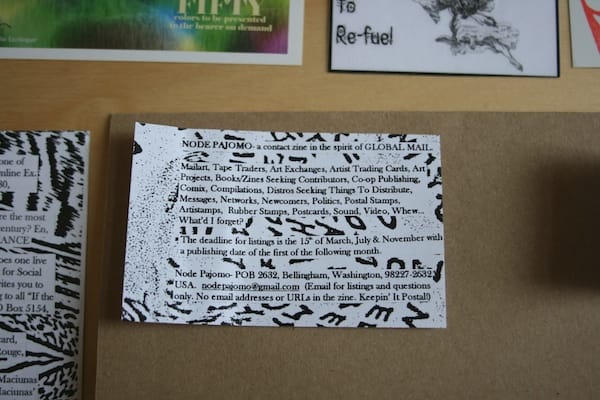 FIFTY
colors to be presented
to the bearer on demand
To
Re-fuel
NODE PAJOMO- a contact zine in the spirit of GLOBAL MAIL.
Mailart, Tape Traders, Art Exchanges, Artist Trading Cards, Art
Projects, Books/Zines Seeking Contributors, Co-op Publishing,
Comix, Compilations, Distros Seeking Things To Distribute,
Messages, Networks, Newcomers, Politics, Postal Stamps,
Artistamps, Rubber Stamps, Postcards, Sound, Video, Whew...
What'd I forget?
The deadline for listings is the 15th of March, July & November with
a publishing date of the first of the following month.
Node Pajomo- POB 2632, Bellingham, Washington, 98227-2632
USA. nodepajomo@gmail.com (Email for listings and questions
only. No email addresses or URLs in the zine. Keepin' It Postal!)
one of
nuline Ex.
30,
re the most
entury? En,
IANCE
oes one live
for Social
vites you to
g to all "If the
O Box 5154,
ard,
Rouge,
Maciunas
Maciunas'